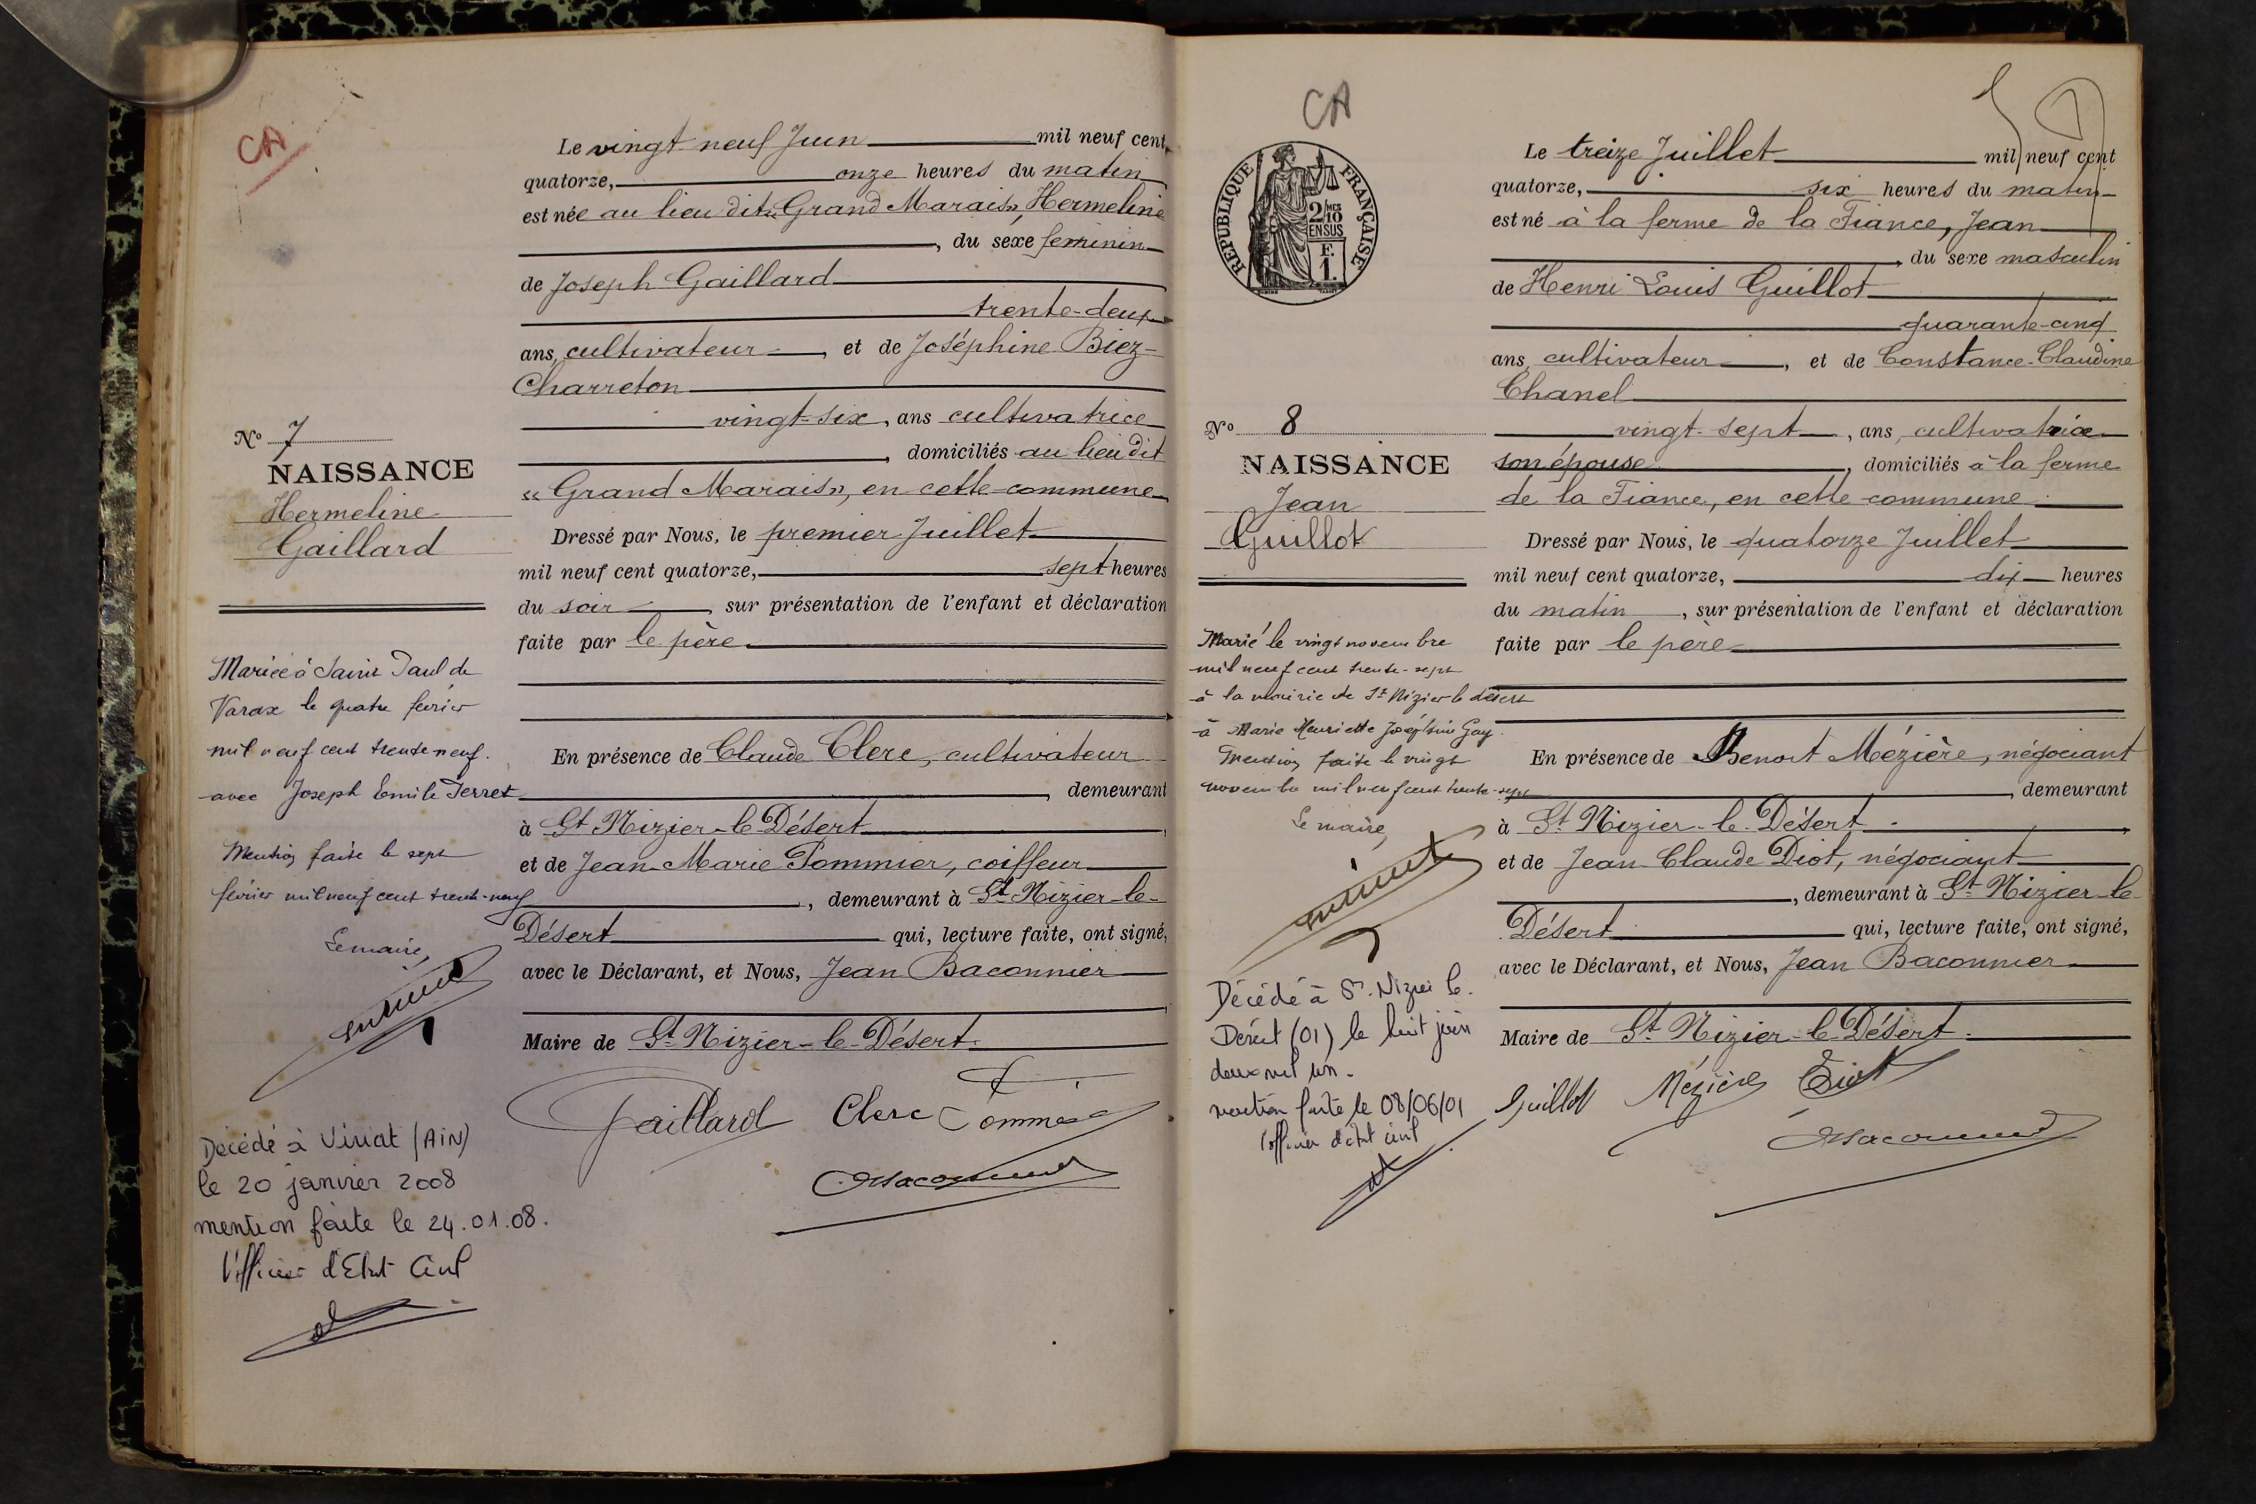 CA
Le vingt neuf Juin mil neuf cent
quatorze, onze heures du matin
est née au lieu dit « Grand Marais », Hermeline
, du sexe feminin
de Joseph Gaillard
trente-deux
ans, cultivateur , et de Joséphine Biez-
Charreton
vingt-six, ans cultivatrice
, domiciliés au lieu dit
« Grand Marais », en cette commune
N° 7
NAISSANCE
Hermeline
Gaillard
Dressé par Nous, le premier Juillet
mil neuf cent quatorze, sept heures
du soir , sur présentation de l'enfant et déclaration
faite par le père
Mariée à Saint Paul de
Varax le quatre février
mil neuf cent trente neuf.
avec Joseph Emile Ferret
Mention faite le sept
février mil neuf cent trente-neuf
Le maire,
En présence de Claude Clerc, cultivateur
, demeurant
à St Nizier-le-Désert ,
et de Jean-Marie Pommier, coiffeur
, demeurant à St Nizier-le-
Désert qui, lecture faite, ont signé,
avec le Déclarant, et Nous, Jean Baconnier
Maire de St Nizier-le-Désert.
Gaillard Clerc Pommier
Baconnier
Décédé à Viriat (AIN)
le 20 janvier 2008
mention faite le 24.01.08.
l'officier d'Etat Civil
CA
REPUBLIQUE FRANÇAISE
2/10 MES
EN SUS
F.
1.
Le treize Juillet mil neuf cent
quatorze, six heures du matin
est né à la ferme de la Fiance, Jean
, du sexe masculin
de Henri Louis Guillot
quarante-cinq
ans, cultivateur , et de Constance-Claudine
Chanel
vingt-sept , ans, cultivatrice
son épouse , domiciliés à la ferme
de la Fiance, en cette commune
N° 8
NAISSANCE
Jean
Guillot
Dressé par Nous, le quatorze Juillet
mil neuf cent quatorze, dix heures
du matin , sur présentation de l'enfant et déclaration
faite par le père
Marié le vingt novembre
mil neuf cent trente-sept
à la mairie de St Nizier le désert
à Marie Henriette Joséphine Gay.
Mention faite le vingt
novembre mil neuf cent trente-sept
Le maire,
En présence de Benoit Mézière, négociant
, demeurant
à St Nizier-le-Désert ,
et de Jean Claude Diot, négociant
, demeurant à St Nizier-le-
Désert qui, lecture faite, ont signé,
avec le Déclarant, et Nous, Jean Baconnier
Maire de St Nizier-le-Désert.
Guillot Mézière Diot
Baconnier
Décédé à St. Nizier le
Désert (01) le huit juin
deux mil un.
mention faite le 08/06/01
l'officier d'état civil